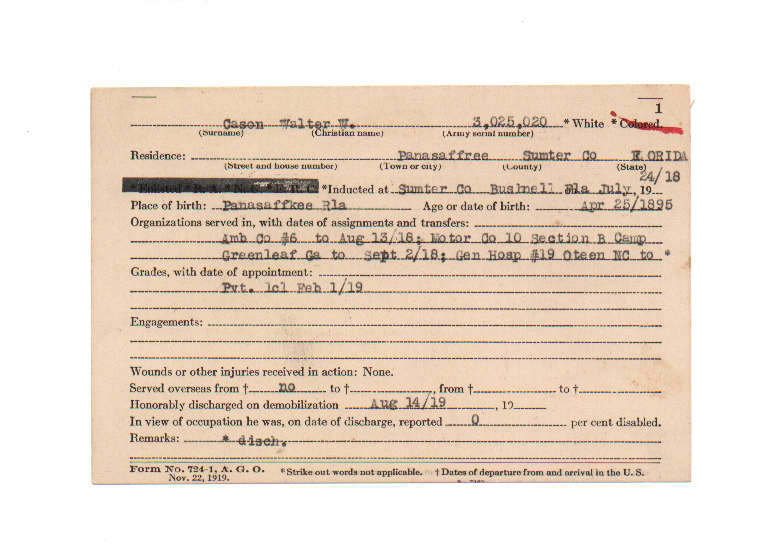 1
Cason Walter W. 3,025,020 * White * Colored.
(Surname) (Christian name) (Army serial number)
Residence: Panasaffree Sumter Co ORIDA
(Street and house number) (Town or city) (County) (State)
24/18
*Inducted at Sumter Co Bushnell Fla July, 19
Place of birth: Panasaffkee Rla Age or date of birth: Apr 25/1895
Organizations served in, with dates of assignments and transfers:
Amb Co #6 to Aug 13/18; Motor Co 10 Section B Camp
Greenleaf Ga to Sept 2/18; Gen Hosp #19 Oteen NC to *
Grades, with date of appointment:
Pvt. 1cl Feb 1/19
Engagements:
Wounds or other injuries received in action: None.
Served overseas from † no to †, from † to †
Honorably discharged on demobilization Aug 14/19, 19
In view of occupation he was, on date of discharge, reported 0 per cent disabled.
Remarks: * disch.
Form No. 724-1, A. G. O. *Strike out words not applicable. † Dates of departure from and arrival in the U. S.
Nov. 22, 1919.